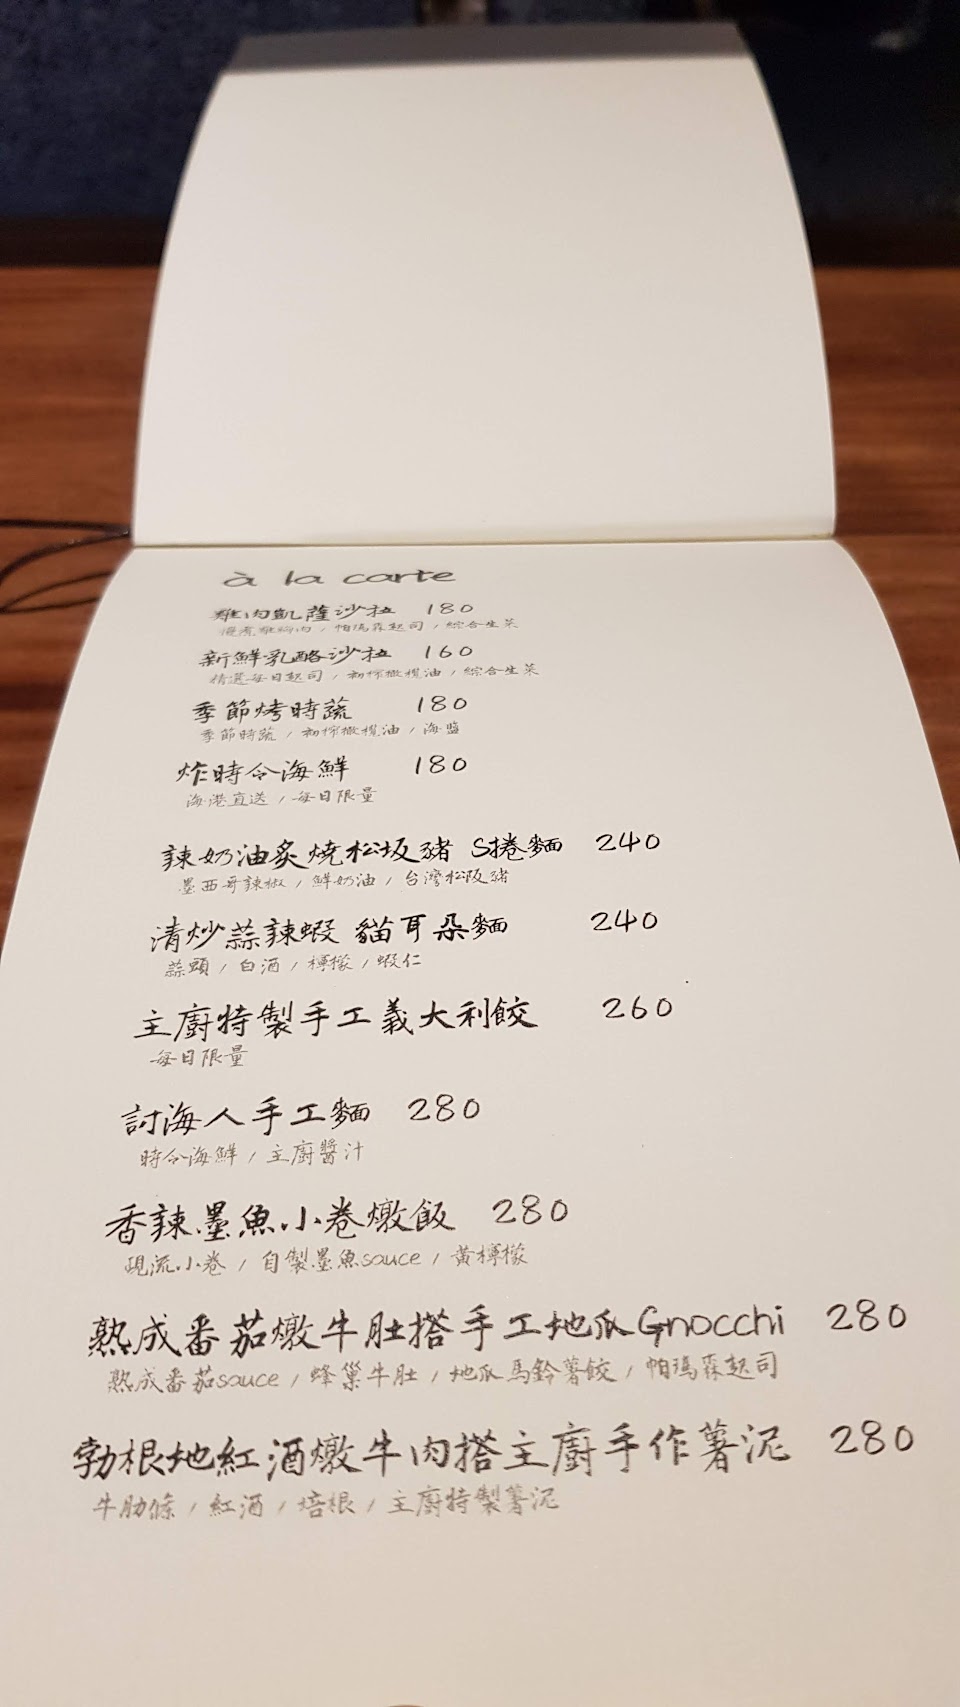 à la carte
雞肉凱薩沙拉 180
慢煮雞胸肉 / 帕瑪森起司 / 綜合生菜
新鮮乳酪沙拉 160
精選每日起司 / 初榨橄欖油 / 綜合生菜
季節烤時蔬 180
季節時蔬 / 初榨橄欖油 / 海鹽
炸時令海鮮 180
海港直送 / 每日限量
辣奶油炙燒松坂豬 S捲麵 240
墨西哥辣椒 / 鮮奶油 / 台灣松阪豬
清炒蒜辣蝦 貓耳朵麵 240
蒜頭 / 白酒 / 檸檬 / 蝦仁
主廚特製手工義大利餃 260
每日限量
討海人手工麵 280
時令海鮮 / 主廚醬汁
香辣墨魚小卷燉飯 280
現流小卷 / 自製墨魚sauce / 黃檸檬
熟成番茄燉牛肚搭手工地瓜Gnocchi 280
熟成番茄sauce / 蜂巢牛肚 / 地瓜馬鈴薯餃 / 帕瑪森起司
勃根地紅酒燉牛肉搭主廚手作薯泥 280
牛肋條 / 紅酒 / 培根 / 主廚特製薯泥